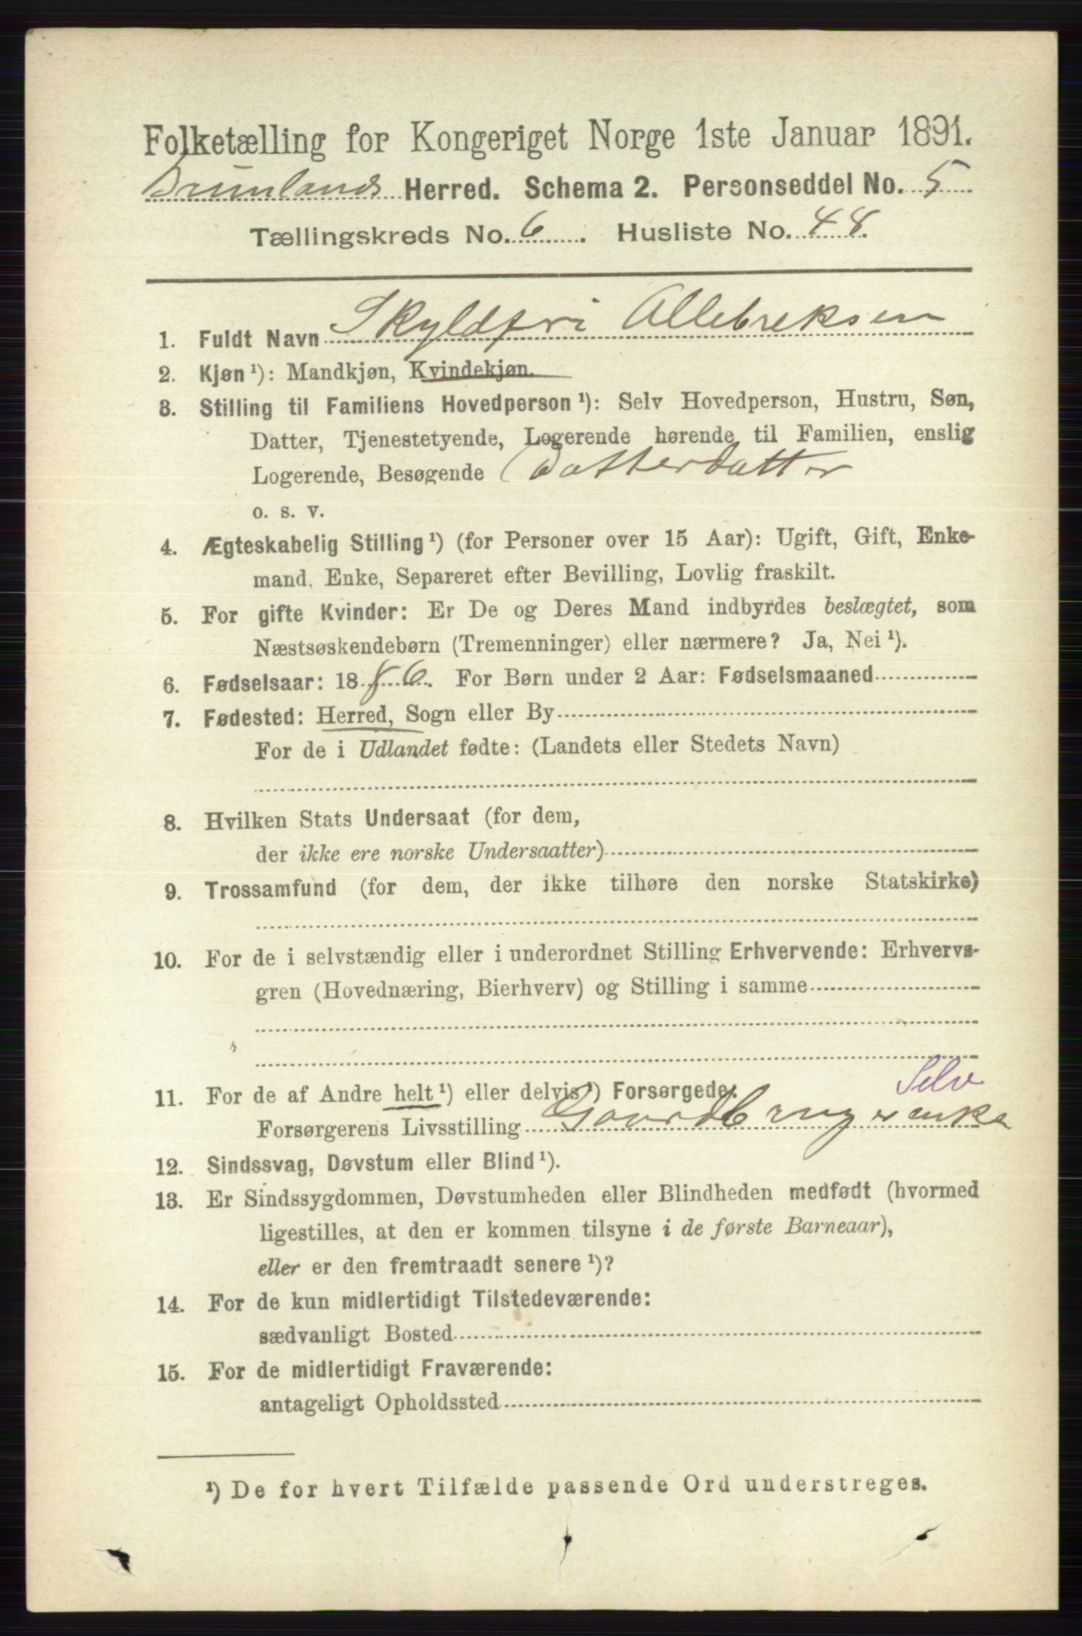 Folketælling for Kongeriget Norge 1ste Januar 1891.
Brunlands Herred. Schema 2. Personseddel No. 5
Tællingskreds No. 6. Husliste No. 48.
1. Fuldt Navn Skyldfri Allebreksen
2. Kjøn ¹): Mandkjøn, Kvindekjøn.
3. Stilling til Familiens Hovedperson ¹): Selv Hovedperson, Hustru, Søn,
Datter, Tjenestetyende, Logerende hørende til Familien, enslig
Logerende, Besøgende Datterdatter
o. s. v.
4. Ægteskabelig Stilling ¹) (for Personer over 15 Aar): Ugift, Gift, Enke-
mand, Enke, Separeret efter Bevilling, Lovlig fraskilt.
5. For gifte Kvinder: Er De og Deres Mand indbyrdes beslægtet, som
Næstsøskendebørn (Tremenninger) eller nærmere? Ja, Nei ¹).
6. Fødselsaar: 1886. For Børn under 2 Aar: Fødselsmaaned
7. Fødested: Herred, Sogn eller By
For de i Udlandet fødte: (Landets eller Stedets Navn)
8. Hvilken Stats Undersaat (for dem,
der ikke ere norske Undersaatter)
9. Trossamfund (for dem, der ikke tilhøre den norske Statskirke)
10. For de i selvstændig eller i underordnet Stilling Erhvervende: Erhvervs-
gren (Hovednæring, Bierhverv) og Stilling i samme
11. For de af Andre helt ¹) eller delvis ¹) Forsørgede: Selv
Forsørgerens Livsstilling Gaardbrugerenke
12. Sindssvag, Døvstum eller Blind ¹).
13. Er Sindssygdommen, Døvstumheden eller Blindheden medfødt (hvormed
ligestilles, at den er kommen tilsyne i de første Barneaar),
eller er den fremtraadt senere ¹)?
14. For de kun midlertidigt Tilstedeværende:
sædvanligt Bosted
15. For de midlertidigt Fraværende:
antageligt Opholdssted
¹) De for hvert Tilfælde passende Ord understreges.